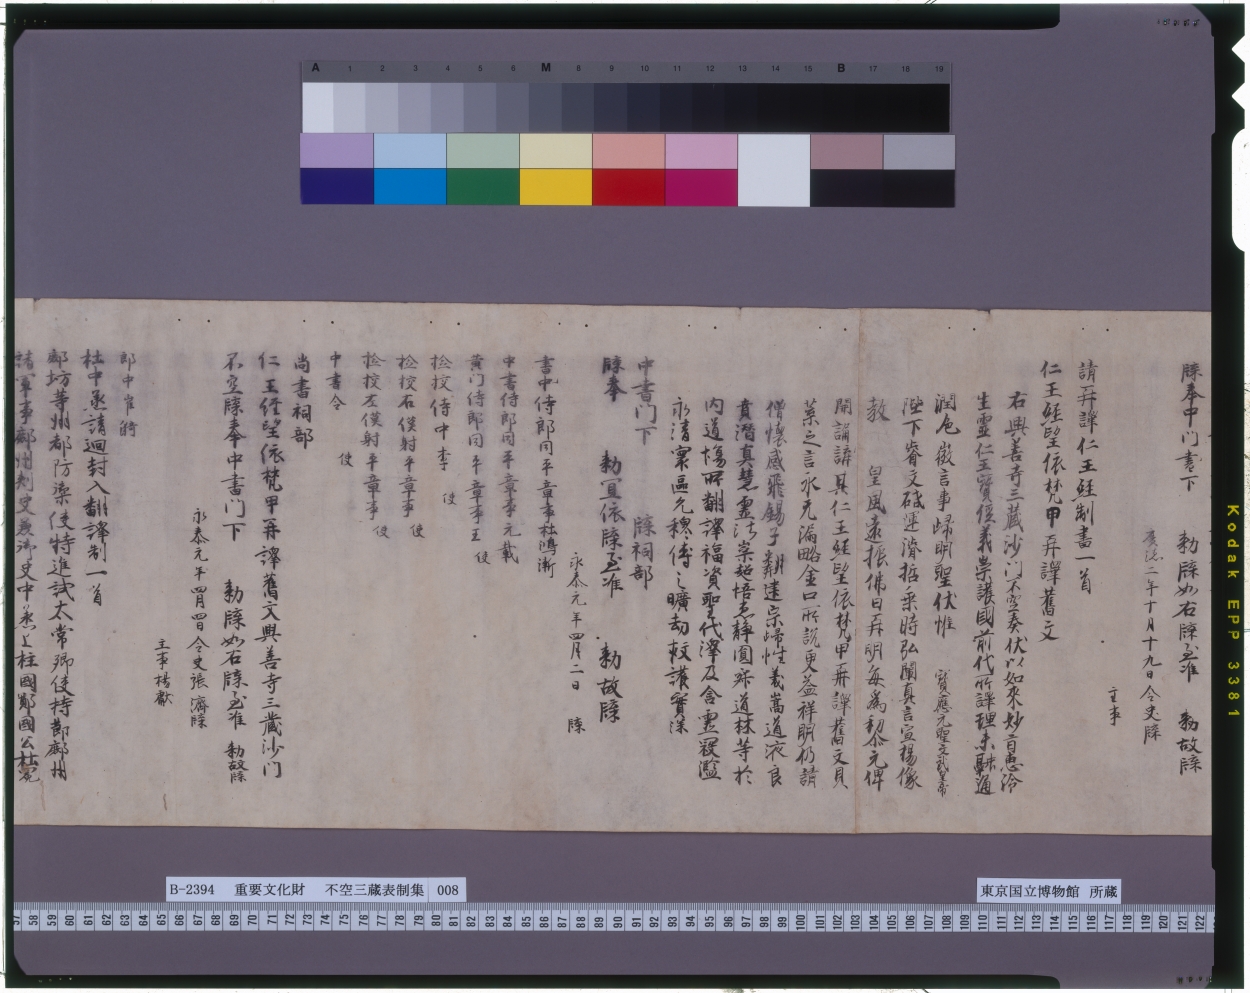 牒奉中門書下　勅牒如右牒至准　勅故牒
廣德二年十月十九日令史牒
主事
請再譯仁王經制書一首
仁王經望依梵甲再譯舊文
右興善寺三藏沙門不空奏伏以如來妙旨惠洽
生靈仁王寶經義崇護國前代所譯理未融通
潤色微言事歸明聖伏惟　寶應元聖文武皇帝
陛下睿文啟運濬哲乘時弘闡真言宣揚像
教　皇風遠振佛日再明每為黎元俾
開誦講其仁王經望依梵甲再譯舊文貝
葉之言永無漏略金口所說更益祥明仍請
僧懷感飛錫子翻建宗歸性義嵩道液良
賁潛真慧靈法崇超悟惠靜圓寂道林等於
內道場所翻譯福資聖代澤及含靈寇濫
永清寰區允穆傳之曠劫救護實深
中書門下　牒祠部
牒奉　勅宜依牒至准　勅故牒
永泰元年四月二日　牒
書中侍郎同平章事杜鴻漸
中書侍郎同平章事元載
黃門侍郎同平章事王　使
撿挍侍中李　使
撿挍右僕射平章事　使
撿挍左僕射平章事　使
中書令　使
尚書祠部
仁王經望依梵甲再譯舊文興善寺三藏沙門
不空牒奉中書門下　勅牒如右牒至准　勅故牒
永泰元年四月四日令史張濟牒
主事楊獻
郎中崔漪
杜中丞請迴封入翻譯制一首
鄜坊等州都防禦使特進試太常卿使持節鄜州
諸軍事鄜州刺史兼御史中丞上柱國鄭國公杜冕
A 1 2 3 4 5 6 M 8 9 10 11 12 13 14 15 B 17 18 19
Kodak EPP 3381
B-2394　重要文化財　不空三蔵表制集　008
東京国立博物館 所蔵
57 58 59 60 61 62 63 64 65 66 67 68 69 70 71 72 73 74 75 76 77 78 79 80 81 82 83 84 85 86 87 88 89 90 91 92 93 94 95 96 97 98 99 100 101 102 103 104 105 106 107 108 109 110 111 112 113 114 115 116 117 118 119 120 121 122